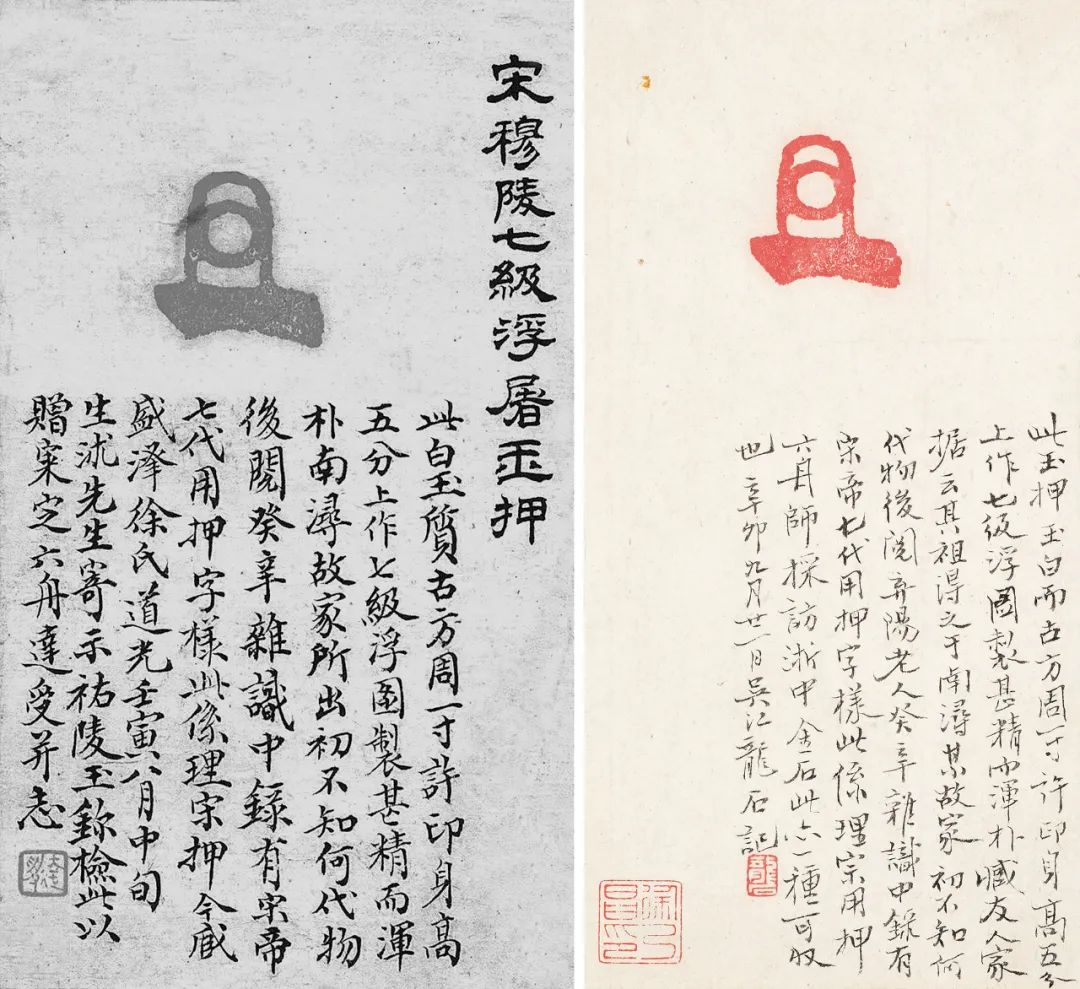 宋穆陵七級浮屠玉押
此白玉質古方周一寸許印身高
五分上作七級浮圖製甚精而渾
朴南潯故家所出初不知何代物
後閱癸辛雜識中錄有宋帝
七代用押字樣此係理宗押今咸
盛澤徐氏道光壬寅八月中旬
生沭先生寄示祐陵玉鉨檢此以
贈案定六舟達受并志
此玉押玉白而古方周一寸許印身高五分
上作七級浮圖製甚精而渾朴臧友人家
据云其祖得之于南潯某故家初不知何
代物後閱弁陽老人癸辛雜識中錄有
宋帝七代用押字樣此係理宗用押
六舟師採訪浙中金石此亦一種可收
也辛卯九月廿一日吳江龍石記
龍石